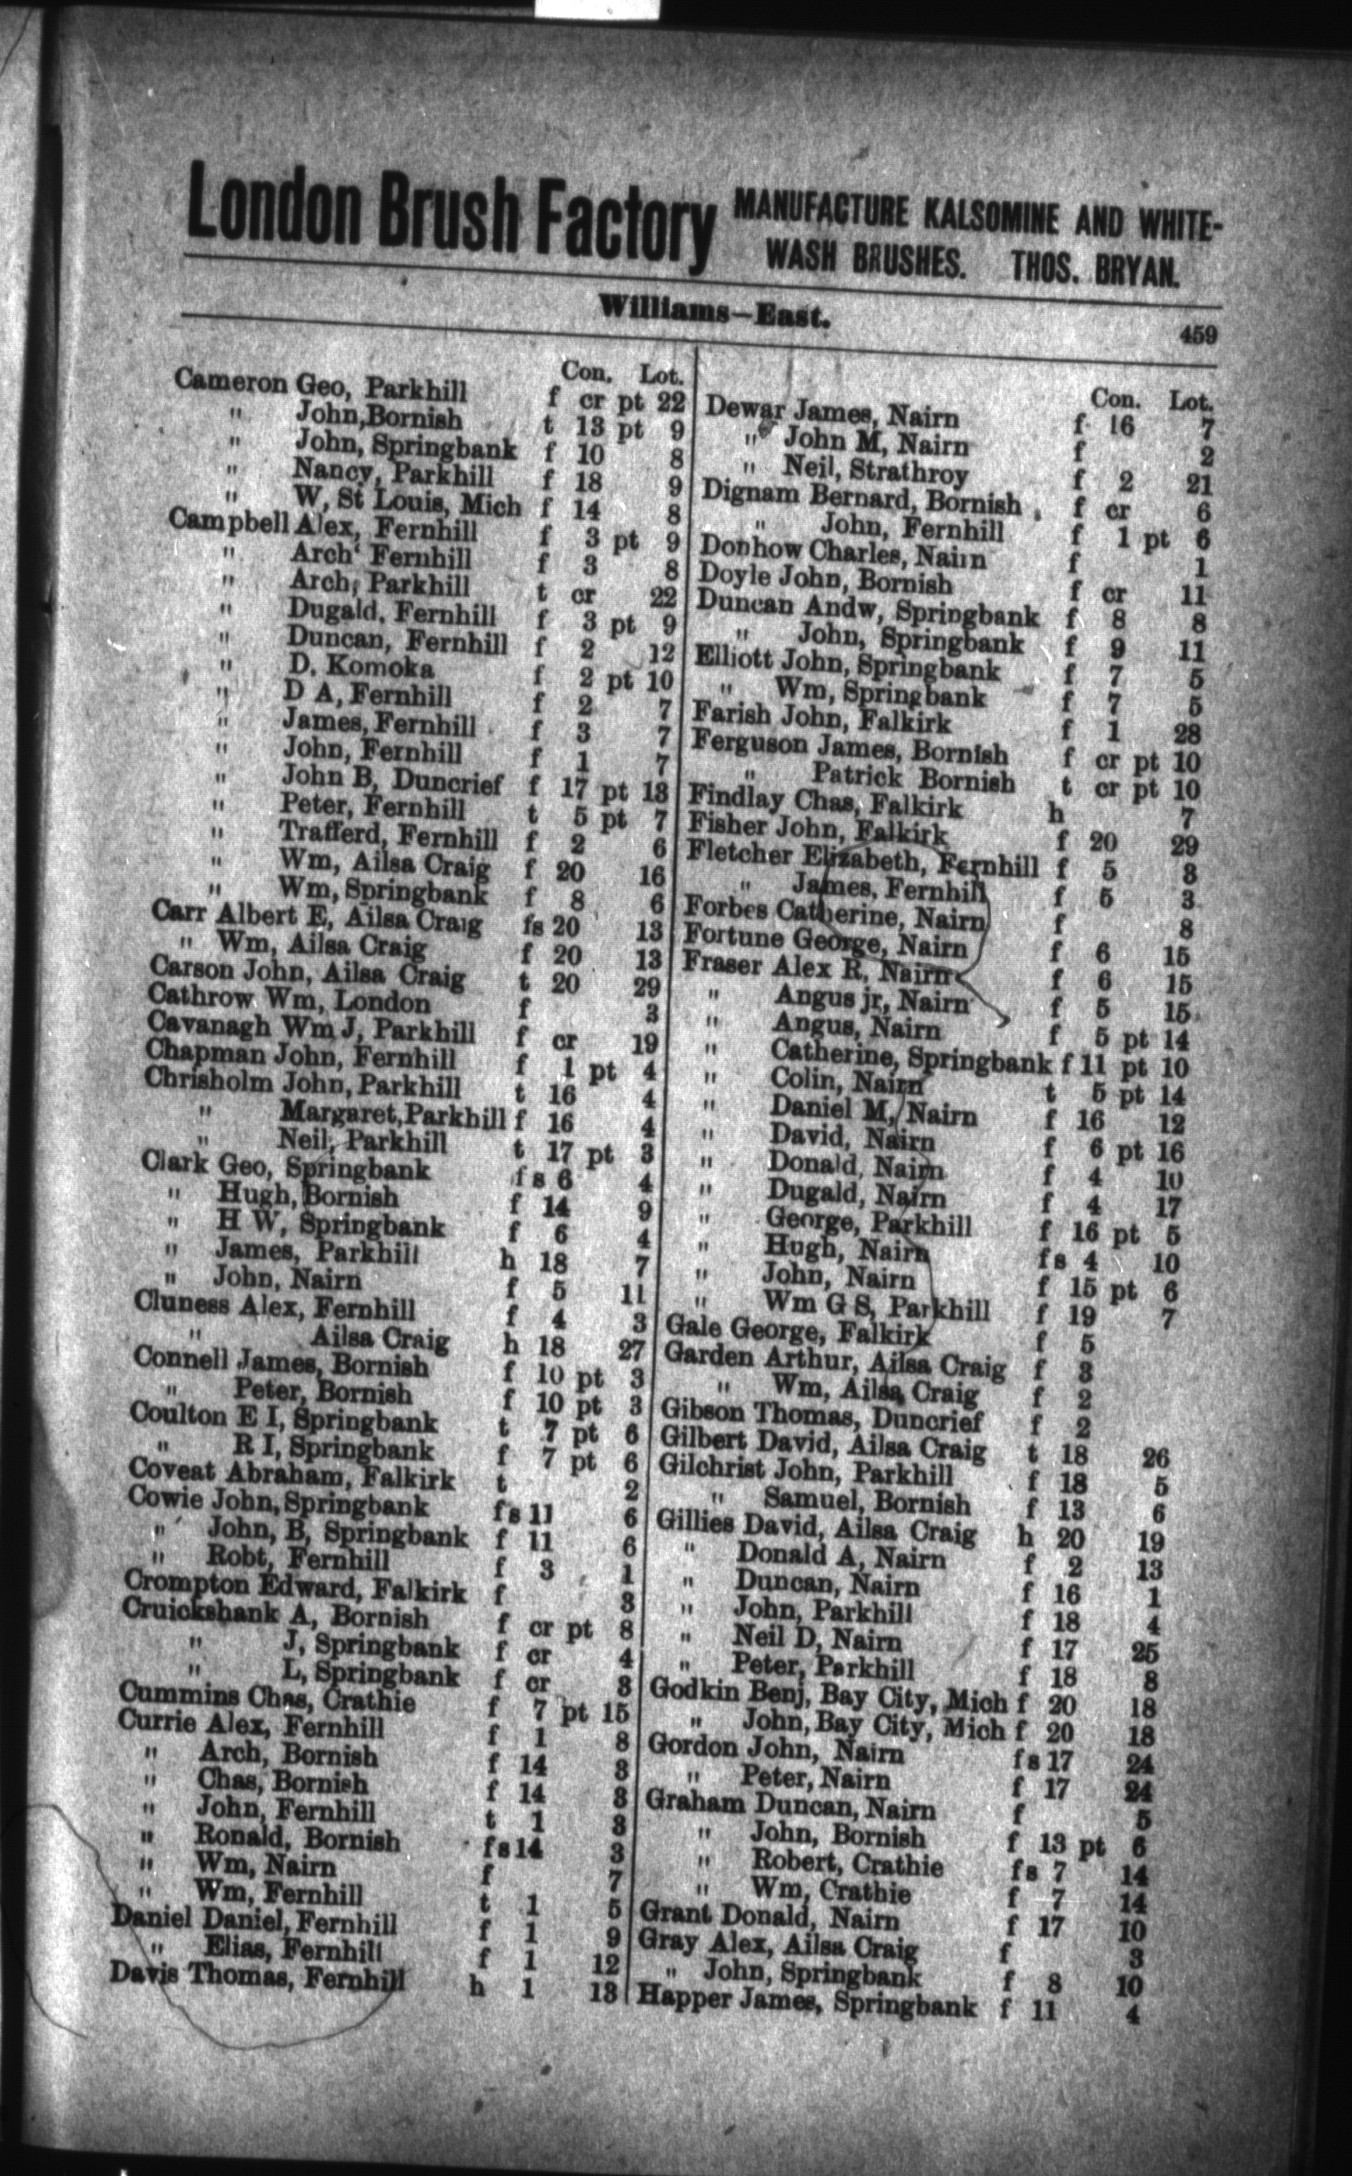 London Brush Factory MANUFACTURE KALSOMINE AND WHITE-
WASH BRUSHES. THOS. BRYAN.
Williams—East. 459
Con. Lot.
Cameron Geo, Parkhill f cr pt 22
" John, Bornish t 13 pt 9
" John, Springbank f 10 8
" Nancy, Parkhill f 18 9
" W, St Louis, Mich f 14 8
Campbell Alex, Fernhill f 3 pt 9
" Arch Fernhill f 3 8
" Arch, Parkhill t cr 22
" Dugald, Fernhill f 3 pt 9
" Duncan, Fernhill f 2 12
" D. Komoka f 2 pt 10
" D A, Fernhill f 2 7
" James, Fernhill f 3 7
" John, Fernhill f 1 7
" John B, Duncrief f 17 pt 13
" Peter, Fernhill t 5 pt 7
" Trafferd, Fernhill f 2 6
" Wm, Ailsa Craig f 20 16
" Wm, Springbank f 8 6
Carr Albert E, Ailsa Craig fs 20 13
" Wm, Ailsa Craig f 20 13
Carson John, Ailsa Craig t 20 29
Cathrow Wm, London f 3
Cavanagh Wm J, Parkhill f cr 19
Chapman John, Fernhill f 1 pt 4
Chrisholm John, Parkhill t 16 4
" Margaret, Parkhill f 16 4
" Neil, Parkhill t 17 pt 3
Clark Geo, Springbank fs 6 4
" Hugh, Bornish f 14 9
" H W, Springbank f 6 4
" James, Parkhill h 18 7
" John, Nairn f 5 11
Cluness Alex, Fernhill f 4 3
" Ailsa Craig h 18 27
Connell James, Bornish f 10 pt 3
" Peter, Bornish f 10 pt 3
Coulton E I, Springbank t 7 pt 6
" R I, Springbank f 7 pt 6
Coveat Abraham, Falkirk t 2
Cowie John, Springbank fs 11 6
" John, B, Springbank f 11 6
" Robt, Fernhill f 3 1
Crompton Edward, Falkirk f 3
Cruickshank A, Bornish f cr pt 8
" J, Springbank f cr 4
" L, Springbank f cr 3
Cummins Chas, Crathie f 7 pt 15
Currie Alex, Fernhill f 1 8
" Arch, Bornish f 14 3
" Chas, Bornish f 14 3
" John, Fernhill t 1 3
" Ronald, Bornish fs 14 3
" Wm, Nairn f 7
" Wm, Fernhill t 1 5
Daniel Daniel, Fernhill f 1 9
" Elias, Fernhill f 1 12
Davis Thomas, Fernhill h 1 13
Con. Lot.
Dewar James, Nairn f 16 7
" John M, Nairn f 2
" Neil, Strathroy f 2 21
Dignam Bernard, Bornish f cr 6
" John, Fernhill f 1 pt 6
Donhow Charles, Nairn f 1
Doyle John, Bornish f cr 11
Duncan Andw, Springbank f 8 8
" John, Springbank f 9 11
Elliott John, Springbank f 7 5
" Wm, Springbank f 7 5
Farish John, Falkirk f 1 28
Ferguson James, Bornish f cr pt 10
" Patrick Bornish t cr pt 10
Findlay Chas, Falkirk h 7
Fisher John, Falkirk f 20 29
Fletcher Elizabeth, Fernhill f 5 3
" James, Fernhill f 5 3
Forbes Catherine, Nairn f 8
Fortune George, Nairn f 6 15
Fraser Alex R, Nairn f 6 15
" Angus jr, Nairn f 5 15
" Angus, Nairn f 5 pt 14
" Catherine, Springbank f 11 pt 10
" Colin, Nairn t 5 pt 14
" Daniel M, Nairn f 16 12
" David, Nairn f 6 pt 16
" Donald, Nairn f 4 10
" Dugald, Nairn f 4 17
" George, Parkhill f 16 pt 5
" Hugh, Nairn fs 4 10
" John, Nairn f 15 pt 6
" Wm G S, Parkhill f 19 7
Gale George, Falkirk f 5
Garden Arthur, Ailsa Craig f 3
" Wm, Ailsa Craig f 2
Gibson Thomas, Duncrief f 2
Gilbert David, Ailsa Craig t 18 26
Gilchrist John, Parkhill f 18 5
" Samuel, Bornish f 13 6
Gillies David, Ailsa Craig h 20 19
" Donald A, Nairn f 2 13
" Duncan, Nairn f 16 1
" John, Parkhill f 18 4
" Neil D, Nairn f 17 25
" Peter, Parkhill f 18 8
Godkin Benj, Bay City, Mich f 20 18
" John, Bay City, Mich f 20 18
Gordon John, Nairn fs 17 24
" Peter, Nairn f 17 24
Graham Duncan, Nairn f 5
" John, Bornish f 13 pt 6
" Robert, Crathie fs 7 14
" Wm, Crathie f 7 14
Grant Donald, Nairn f 17 10
Gray Alex, Ailsa Craig f 3
" John, Springbank f 8 10
Happer James, Springbank f 11 4